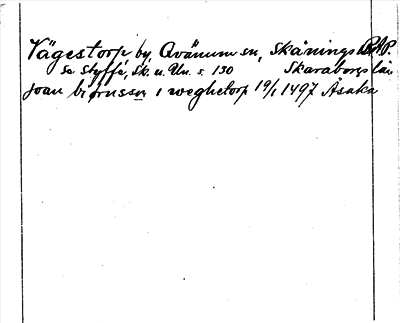 Vägestorp by, Qvänum sn, Skånings Hd P.
Se Styffe, Sk. u. Un. s. 130 Skaraborgs län
joan biørnsson i weghetorp 19/1 1497 Åsaka